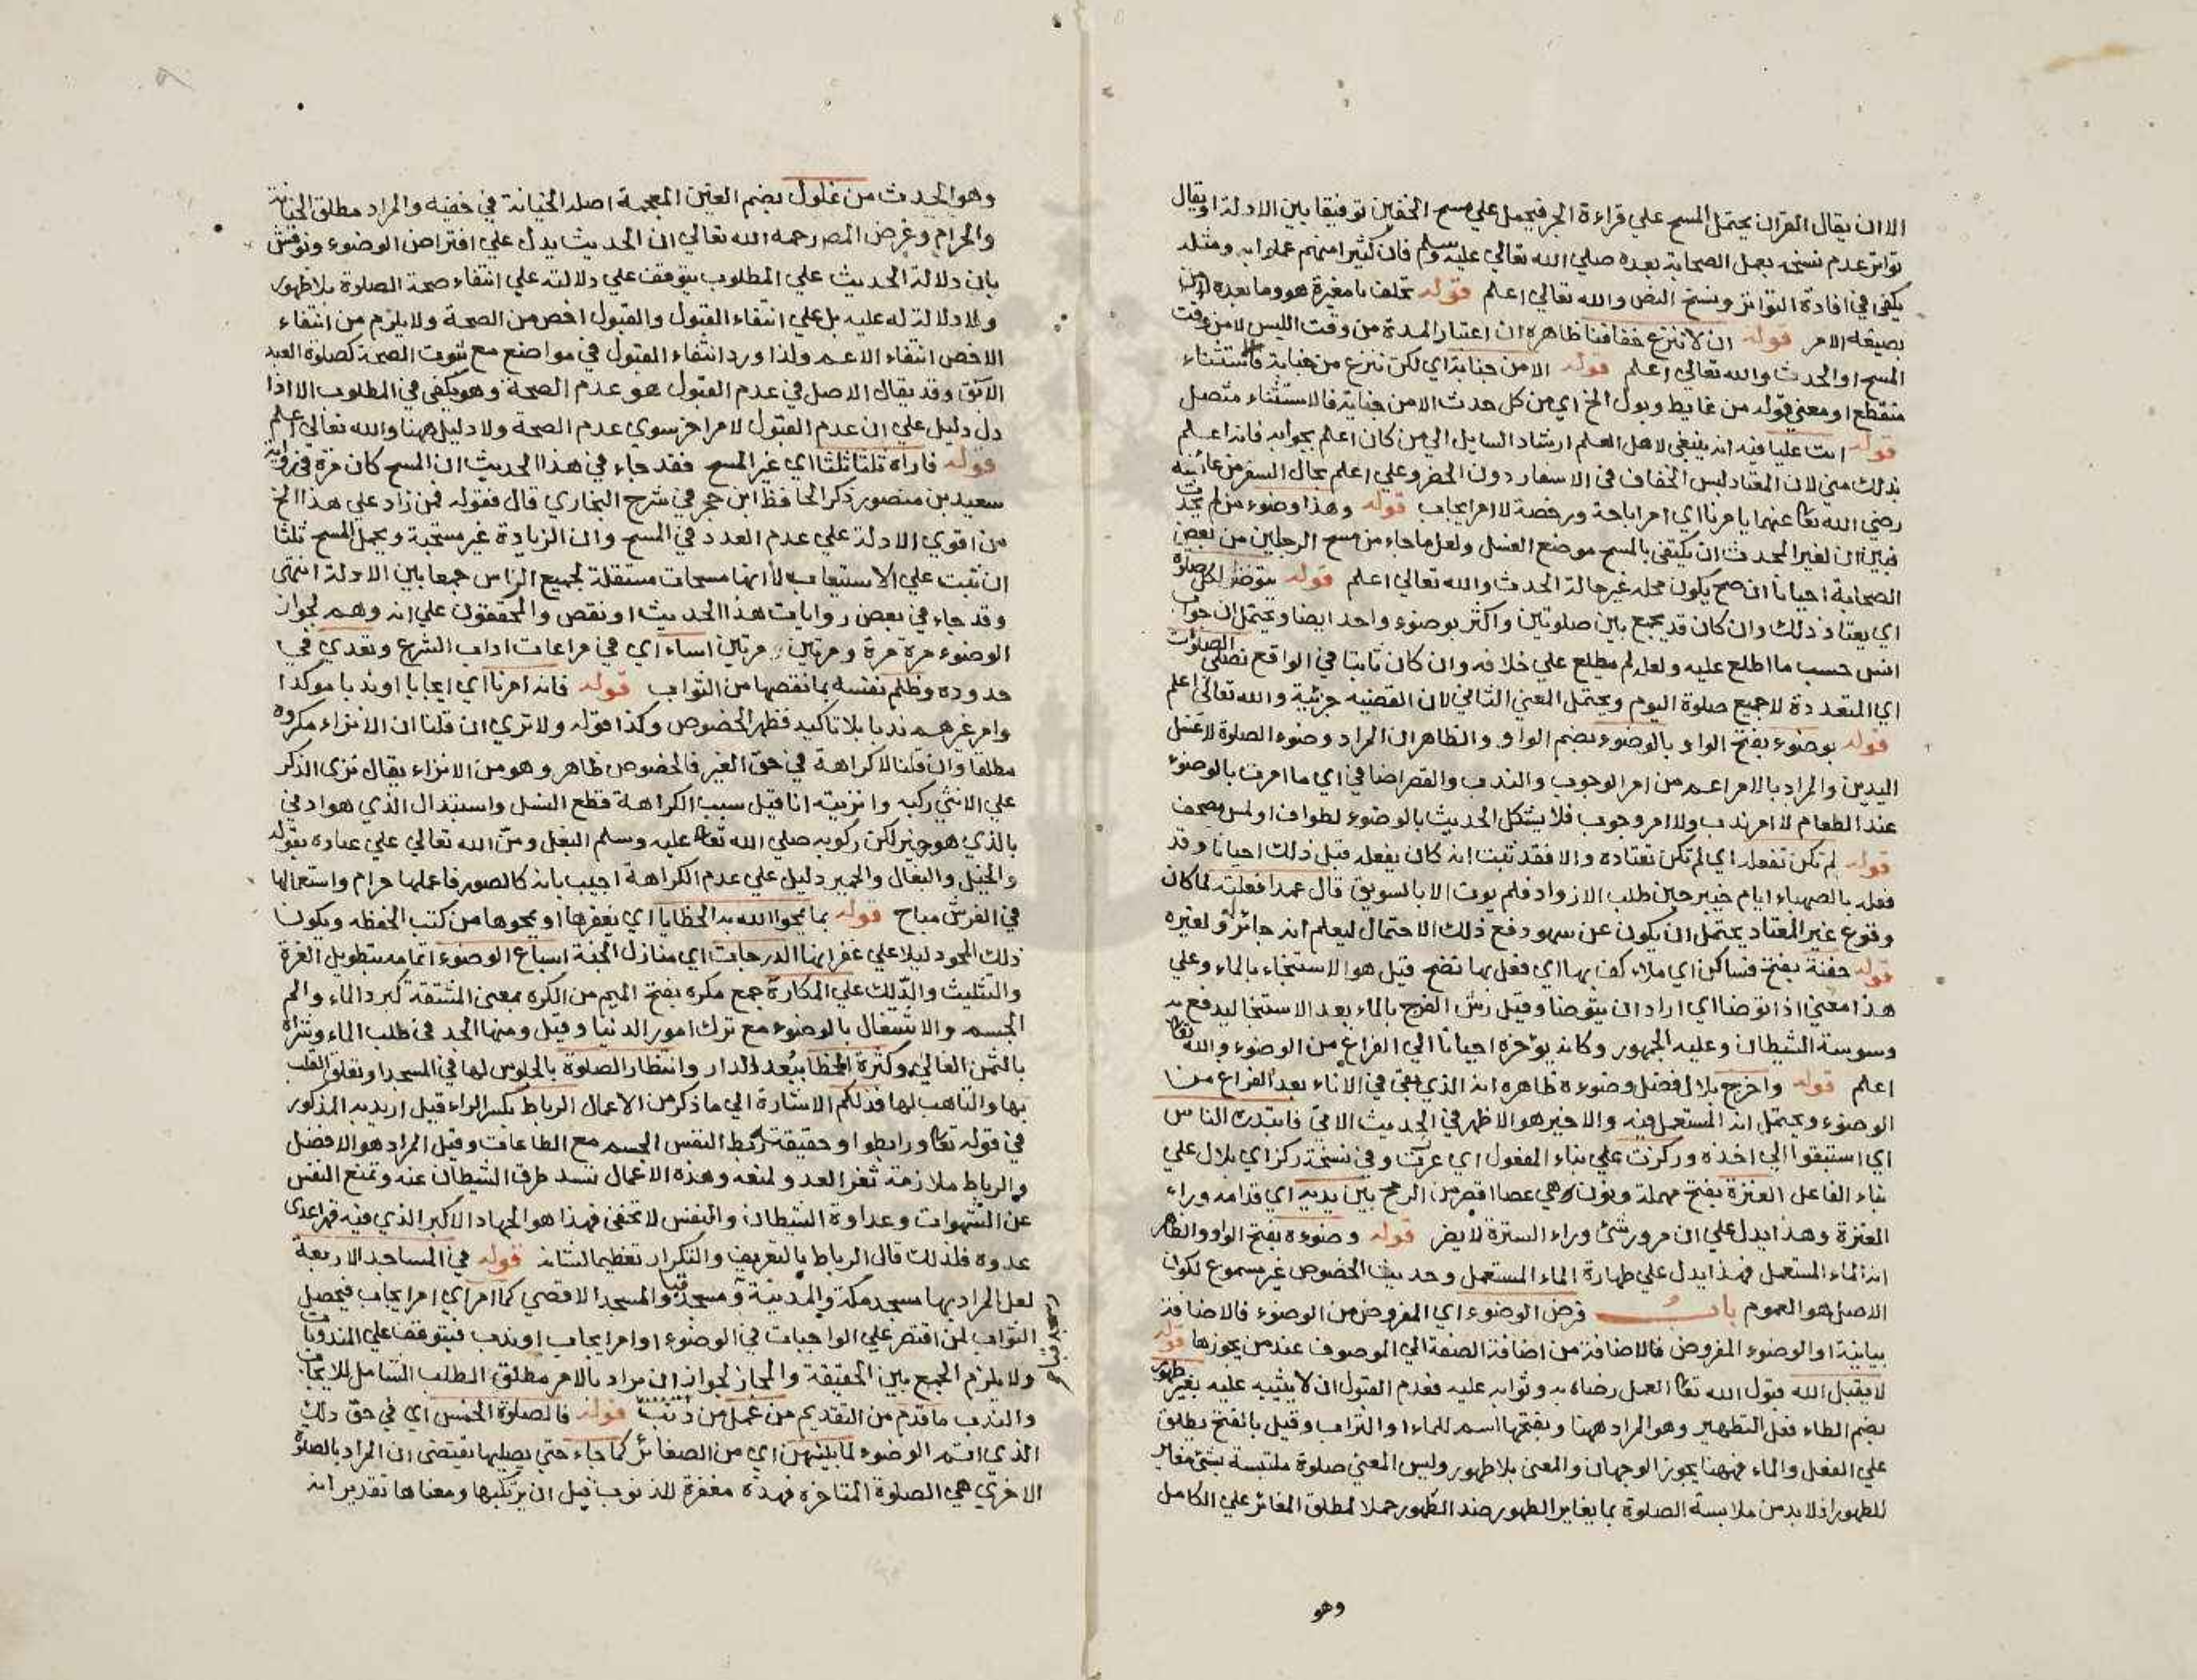 الا ان يقال القران يحتمل المسح علي قراءة الجر فيحمل علي مسح الخفين توفيقا بين الادلة او يقال
تواتر عدم نسخه بعمل الصحابة بعده صلي الله تعالي عليه وسلم فان كثيرا منهم عملوا به ومثله
يكفي في افادة التواتر ونسخ النص والله تعالي اعلم قوله تخلف يا مغيرة هو وما بعده
بصيغة الامر قوله ان لا ننزع خفافنا ظاهره ان اعتبار المدة من وقت اللبس لا من وقت
المسح او الحدث والله تعالي اعلم قوله الا من جنابة اي لكن ننزع من جنابة فالاستثناء
منقطع او معني قوله من غايط وبول الخ اي من كل حدث الا من جنابة فالاستثناء متصل
قوله ائت عليا فيه انه ينبغي لاهل العلم ارشاد السايل الي من كان اعلم بجوابه فانه اعلم
بذلك مني لان المعتاد لبس الخفاف في الاسفار دون الحضر وعلي اعلم بحال السفر من عائشة
رضي الله تعا عنهما يامرنا اي امر اباحة ورخصة لا امر ايجاب قوله وهذا وضوء من لم يحدث
فبين ان لغير المحدث ان يكتفي بالمسح موضع الغسل ولعل ما جاء من مسح الرجلين من بعض
الصحابة احيانا ان صح يكون محله غير حالة الحدث والله تعالي اعلم قوله يتوضا لكل صلوة
اي يعتاد ذلك وان كان قد يجمع بين صلوتين واكثر بوضوء واحد ايضا ويحتمل ان جواب
انس حسب ما اطلع عليه ولعله لم يطلع علي خلافه وان كان ثابتا في الواقع نصلي الصلوات
اي المتعددة لا جميع صلوة اليوم ويحتمل المعني الثاني لان القضيه جزئية والله تعالي اعلم
قوله بوضوء بفتح الواو بالوضوء بضم الواو والظاهر ان المراد وضوء الصلوة لا غسل
اليدين والمراد بالامر اعم من امر الوجوب والندب والقصر اضافي اي ما امرت بالوضوء
عند الطعام لا امر ندب ولا امر وجوب فلا يشكل الحديث بالوضوء لطواف او لمس مصحف
قوله لم تكن تفعله اي لم تكن تعتاده والا فقد ثبت انه كان يفعله قبل ذلك احيانا وقد
فعله بالصهباء ايام خيبر حين طلب الازواد فلم يوت الا بالسويق قال عمدا فعلته لما كان
وقوع غير المعتاد يحتمل ان يكون عن سهو دفع ذلك الاحتمال ليعلم انه جائز له ولغيره
قوله حفنة بفتح فسكون اي ملاء كف بها اي فعل بها نضح قيل هو الاستنجاء بالماء وعلي
هذا معني اذا توضا اي اراد ان يتوضا وقيل رش الفرج بالماء بعد الاستنجا ليدفع به
وسوسة الشيطان وعليه الجمهور وكانه يؤخره احيانا الي الفراغ من الوضوء والله تعا
اعلم قوله واخرج بلال فضل وضوءه ظاهره انه الذي بقي في الاناء بعد الفراغ من
الوضوء ويحتمل انه المستعمل فيه والاخير هو الاظهر في الحديث الاتي فابتدره الناس
اي استبقوا الي اخذه وركزت علي بناء المفعول اي غرزت وفي نسخة ركز اي بلال علي
بناء الفاعل العنزة بفتح مهملة ونون هي عصا اقصر من الرمح بين يديه اي قدامه وراء
العنزة وهذا يدل علي ان مرور شئ وراء السترة لا يضر قوله وضوءه بفتح الواو والظاهر
انه الماء المستعمل فهذا يدل علي طهارة الماء المستعمل وحديث الخصوص غير مسموع لكون
الاصل هو العموم باب فرض الوضوء اي المفروض من الوضوء فالاضافة
بيانية او الوضوء المفروض فالاضافة من اضافة الصفة الي الموصوف عند من يجوزها قوله
لا يقبل الله قبول الله تعا العمل رضاه به وثوابه عليه فعدم القبول ان لا يثيبه عليه بغير طهور
بضم الطاء فعل التطهير وهو المراد ههنا وبفتحها اسم للماء او التراب وقيل بالفتح يطلق
علي الفعل والماء فههنا يجوز الوجهان والمعني بلا طهور وليس المعني صلوة ملتبسة بشئ مغاير
للطهور اذ لا بد من ملابسة الصلوة بما يغاير الطهور ضد الطهور حملا لمطلق المغائر علي الكامل
وهو
وهو الحدث من غلول بضم الغين المعجمة اصله الخيانة في خفيه والمراد مطلق الخيانة
والحرام وغرض المصر رحمه الله تعالي ان الحديث يدل علي افتراض الوضوء ونوقش
بان دلالة الحديث علي المطلوب يتوقف علي دلالته علي انتفاء صحة الصلوة بلا طهور
ولا دلالة له عليه بل علي انتفاء القبول والقبول اخص من الصحة ولا يلزم من انتفاء
الاخص انتفاء الاعم ولذا ورد انتفاء القبول في مواضع مع ثبوت الصحة كصلوة العبد
الآبق وقد يقال الاصل في عدم القبول هو عدم الصحة وهو يكفي في المطلوب الا اذا
دل دليل علي ان عدم القبول لامر اخر سوي عدم الصحة ولا دليل ههنا والله تعالي اعلم
قوله فاراه ثلثا ثلثا اي غير المسح فقد جاء في هذا الحديث ان المسح كان مرة في رواية
سعيد بن منصور ذكر الحافظ ابن حجر في شرح البخاري قال فقوله فمن زاد علي هذا الخ
من اقوي الادلة علي عدم العدد في المسح وان الزيادة غير مستحبة ويحمل المسح ثلثا
ان ثبت علي الاستيعاب لا انها مسحات مستقلة لجميع الراس جمعا بين الادلة انتهي
وقد جاء في بعض روايات هذا الحديث او نقص والمحققون علي انه وهم لجواز
الوضوء مرة مرة ومرتين مرتين اساء اي في مراعات اداب الشرع وتعدي في
حدوده وظلم نفسه بما نقصها من الثواب قوله فانه امرنا اي ايجابا او ندبا موكدا
وامر غيرهم ندبا بلا تاكيد فظهر الخصوص وكذا قوله ولا ننزي ان قلنا ان الانزاء مكروه
مطلقا وان قلنا لا كراهة في حق الغير فالخصوص ظاهر وهو من الانزاء يقال نزي الذكر
علي الانثي ركبه وانزيته انا قيل سبب الكراهة قطع النسل واستبدال الذي هو ادني
بالذي هو خير لكن ركوبه صلي الله تعا عليه وسلم البغل ومن الله تعالي علي عباده بقوله
والخيل والبغال والحمير دليل علي عدم الكراهة اجيب بانه كالصور فاعملها حرام واستعمالها
في الفرش مباح قوله بما يمحوا الله به الخطايا اي يغفرها او يمحوها من كتب الحفظه ويكون
ذلك المحو دليلا علي غفرانها الدرجات اي منازل الجنة اسباغ الوضوء اتمامه بتطويل الغرة
والتثليث والدلك علي المكارة جمع مكره بفتح الميم من الكره بمعني المشقة كبرد الماء والم
الجسم والاشتغال بالوضوء مع ترك امور الدنيا وقيل ومنها الجد في طلب الماء وشراه
بالثمن الغالي وكثرة الخطا ببعد الدار وانتظار الصلوة بالجلوس لها في المسجد او تعلق القلب
بها والتاهب لها فذلكم الاشارة الي ما ذكر من الاعمال الرباط بكسر الراء قيل اريد به المذكور
في قوله تعا ورابطوا وحقيقته ربط النفس الجسم مع الطاعات وقيل المراد هو الافضل
والرباط ملازمة ثغر العدو لمنعه وهذه الاعمال تسد طرق الشيطان عنه وتمنع النفس
عن الشهوات وعداوة الشيطان والنفس لا تخفي فهذا هو الجهاد الاكبر الذي فيه قهر اعدي
عدوه فلذلك قال الرباط بالتعريف والتكرار تعظيما لشانه قوله في المساجد الاربعة
لعل المراد بها مسجد مكة والمدينة ومسجد قبا والمسجد الاقصي كما امر اي امر ايجاب فيحصل
الثواب لمن اقتصر علي الواجبات في الوضوء او امر ايجاب او ندب فيتوقف علي المندوبات
ولا يلزم الجمع بين الحقيقة والمجاز لجواز ان يراد بالامر مطلق الطلب الشامل للايجاب
والندب ما قدم من التقديم من عمل من ذنب قوله فالصلوة الخمس اي في حق ذلك
الذي اتم الوضوء لما بينهن اي من الصغائر كما جاء حتي يصليها يقتضي ان المراد بالصلوة
الاخري هي الصلوة المتاخرة فهذه مغفرة للذنوب قبل ان يرتكبها ومعناها تقدير انه